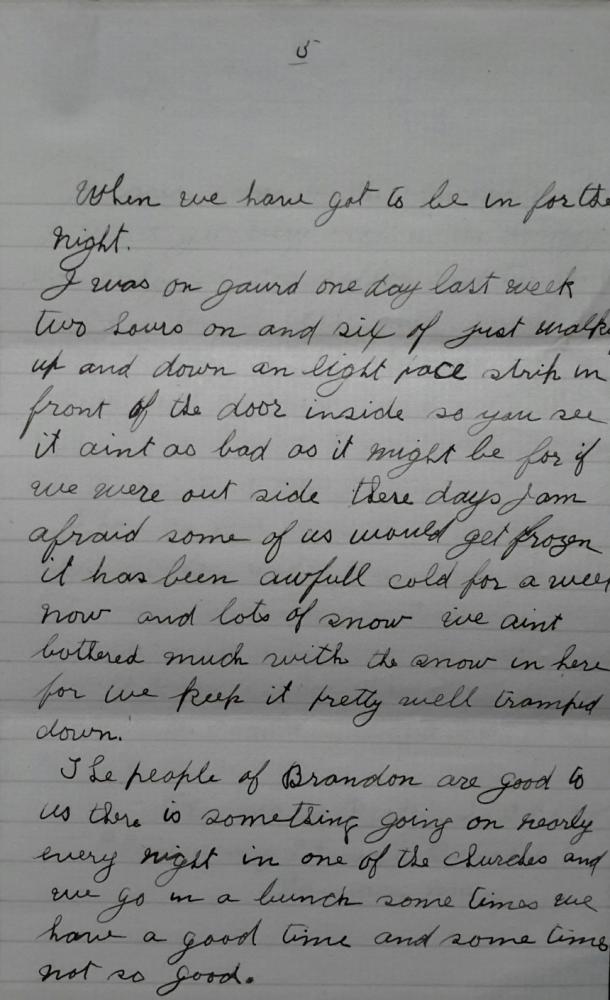 5
When we have got to be in for the
night.
I was on gaurd one day last week
two hours on and six of just walk
up and down an eight pace strip in
front of the door inside so you see
it aint as bad as it might be for if
we were out side these days I am
afraid some of us would get frozen
it has been awfull cold for a week
now and lots of snow we aint
bothered much with the snow in here
for we keep it pretty well tramped
down.
The people of Brandon are good to
us there is something going on nearly
every night in one of the churches and
we go in a bunch some times we
have a good time and some times
not so good.